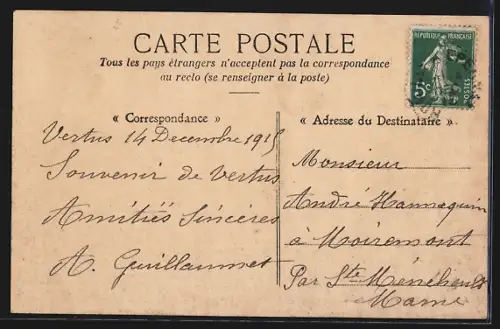 CARTE POSTALE
Tous les pays étrangers n'acceptent pas la correspondance
au recto (se renseigner à la poste)
RÉPUBLIQUE FRANÇAISE
5c
POSTES
« Correspondance »
Vertus 14 Decembre 1915
Souvenir de Vertus
Amitiés Sincères
A. Guillaumet
« Adresse du Destinataire »
Monsieur
André Hannequin
à Moiremont
Par Ste Ménéhould
Marne